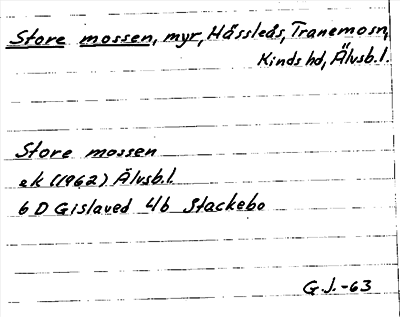 Store mossen, myr, Hässleås, Tranemosn,
Kinds hd, Älvsb.l.
Store mossen
ek (1962) Älvsb.l.
6 D Gislaved 4b Stackebo
G.J.-63